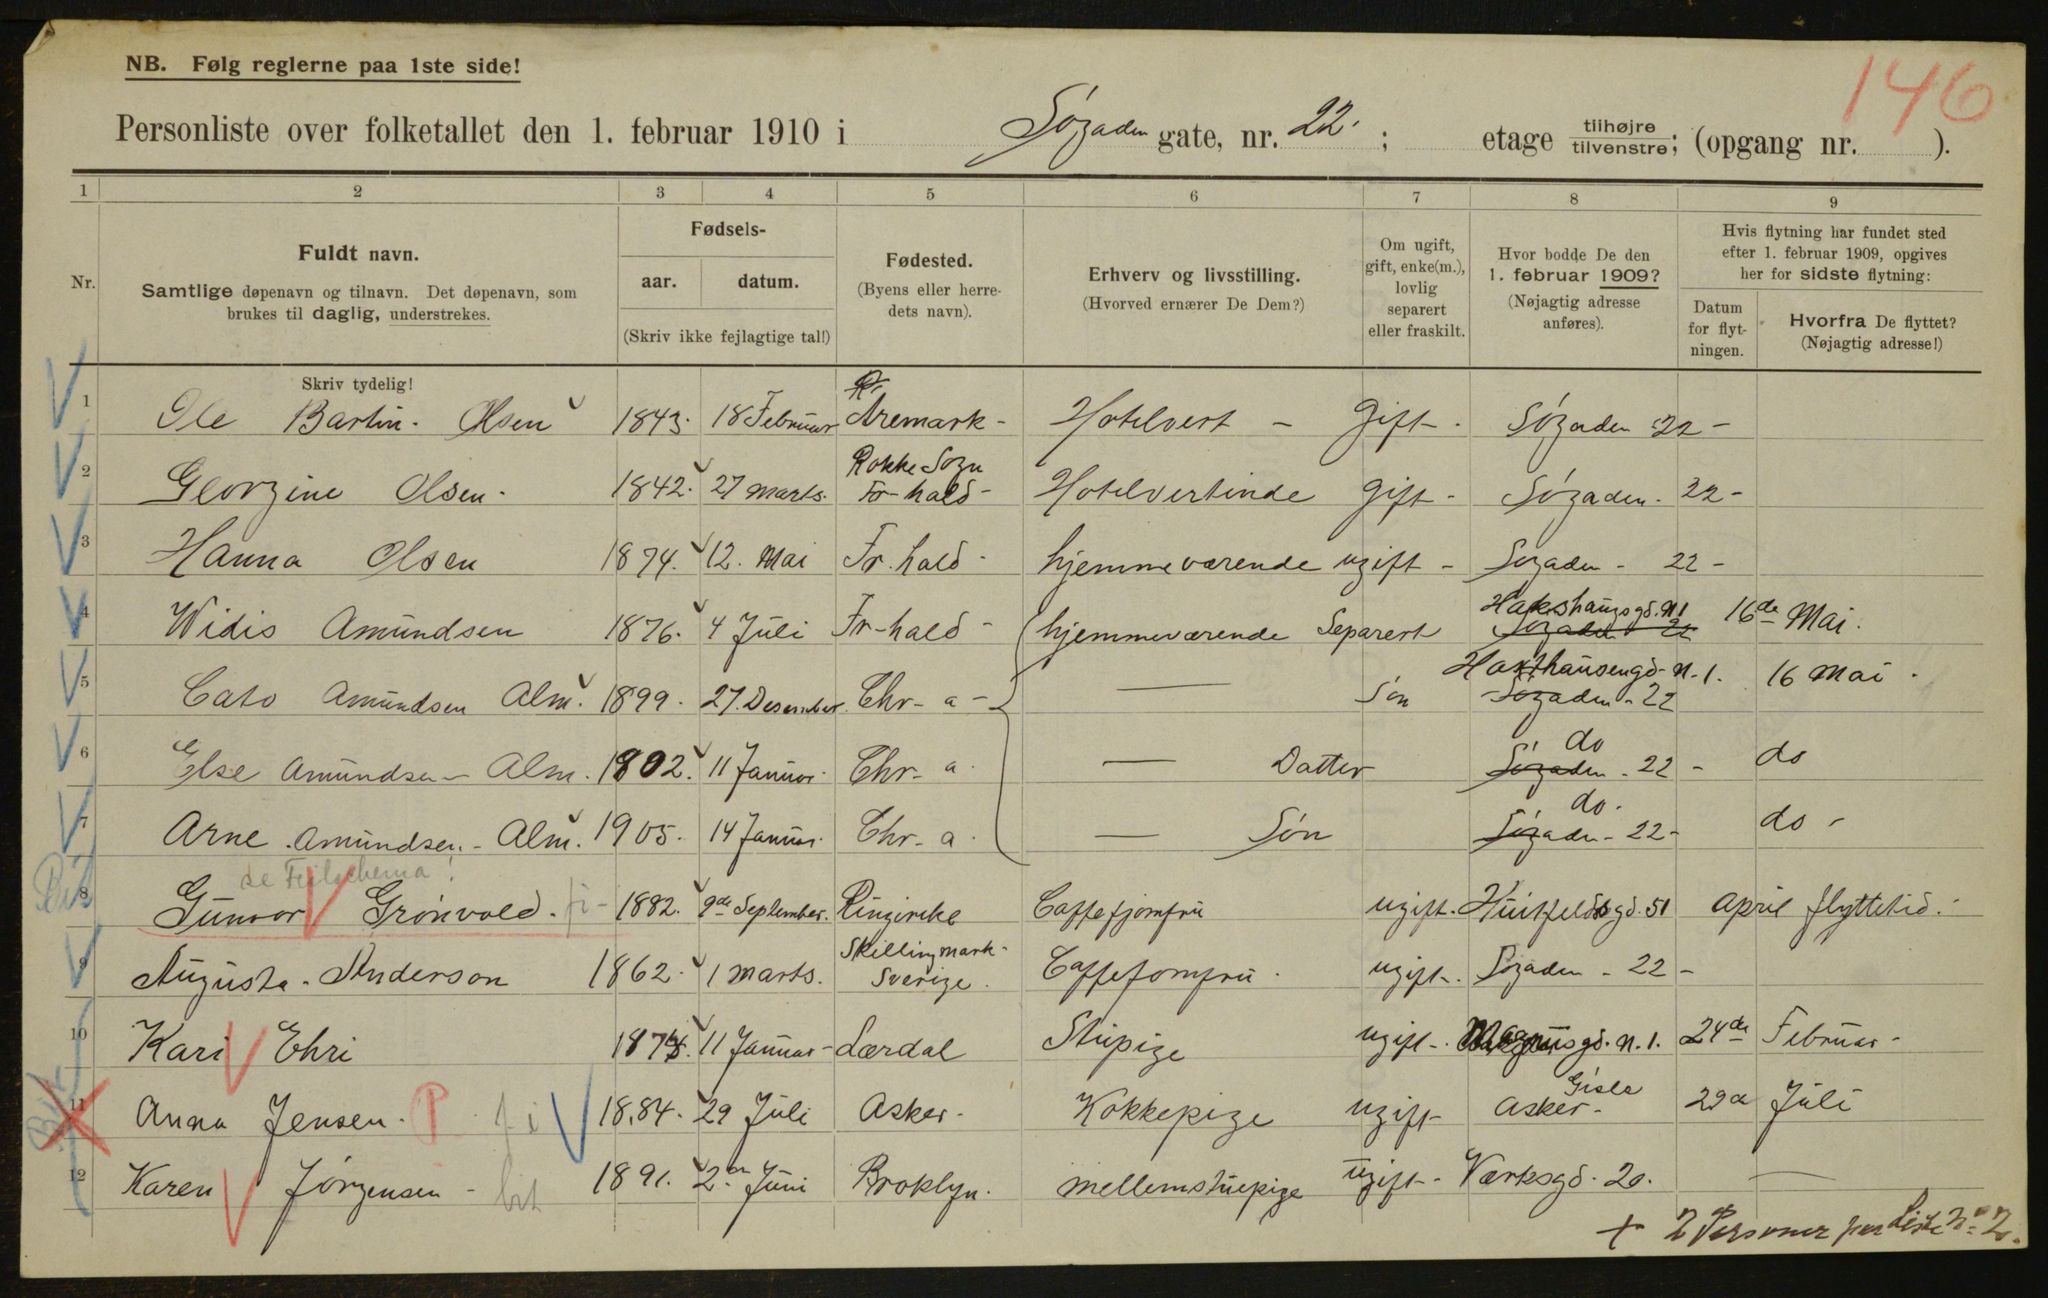 146
NB. Følg reglerne paa 1ste side!
Personliste over folketallet den 1. februar 1910 i Søgaden gate, nr. 22. ; etage tilhøjre tilvenstre; (opgang nr. ).
1 2 3 4 5 6 7 8 9
Nr.
Fuldt navn.
Samtlige døpenavn og tilnavn. Det døpenavn, som
brukes til daglig, understrekes.
Fødsels-
aar. datum.
(Skriv ikke fejlagtige tal!)
Fødested.
(Byens eller herre-
dets navn).
Erhverv og livsstilling.
(Hvorved ernærer De Dem?)
Om ugift,
gift, enke(m.),
lovlig
separert
eller fraskilt.
Hvor bodde De den
1. februar 1909?
(Nøjagtig adresse
anføres).
Hvis flytning har fundet sted
efter 1. februar 1909, opgives
her for sidste flytning:
Datum
for flyt-
ningen.
Hvorfra De flyttet?
(Nøjagtig adresse!)
Skriv tydelig!
1 Ole Bartin. Olsen 1843. 18 Februar Aremark - Hotelvert - Gift - Søgaden 22 -
Rokke Sogn
2 Georgine Olsen. 1842. 27 marts. Fr-hald - Hotelvertinde Gift - Søgaden - 22 -
3 Hanna Olsen 1874. 12. Mai Fr. hald - hjemmeværende ugift - Søgaden - 22 -
4 Widis Amundsen 1876. 4 Juli Fr-hald - hjemmeværende Separert Søgaden 22 16de Mai.
Haxthausengd. N. 1.
5 Cato Amundsen Alm. 1899. 27. Desember. Chr-a - Søn Søgaden - 22 16 Mai.
do
6 Else Amundsen - Alm. 1902. 11 Januar. Chr-a. Datter Søgaden - 22 - do
do.
7 Arne. Amundsen. - Alm. 1905. 14 Januar. Chr-a. Søn Søgaden - 22 - do -
se Feilschema!
8 Gunvor Grønvold. fi- 1882. 9de September. Ringirike Caffejomfru ugift. Huitfeldtsgd. 51 April flyttetid.
Skillingmark -
9 Augusta. Anderson 1862. 1 marts. Sverige. Caffejomfru. ugift. Søgaden - 22 -
10 Kari Ehri 11 Januar - Lærdal Stupige ugift - Magnusgd. N. 1. 24de Februar -
Gisle
11 Anna Jensen. P fi 1884. 29 Juli Asker - Kokkepige ugift - Asker - 29de Juli
12 Karen Jørgensen - bit 1891. 2en Juni Broklyn. mellemstuepige ugift - Værksgd. 20. —
+ 2 Personer paa Liste No 2.